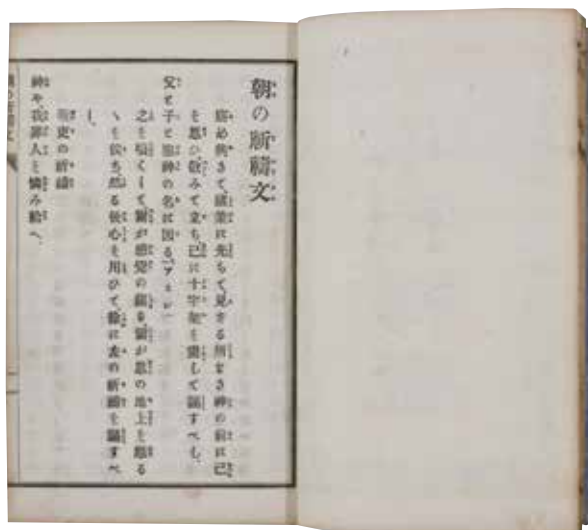 朝の祈禱文
寤め興きて、諸業に先ちて、見ざる所なき神の前に己
を思ひ敬みて立ち、己に十字架を畫して誦すべし、
父と子と聖神の名に因る、アミン
之を嘿くして、爾が感覺の鎭り爾が思の地上を離る
ゝを俟ち、然る後心を用ひて徐に左の祈禱を誦すべ
し、
税吏の祈禱
神や、我罪人を憐み給へ、